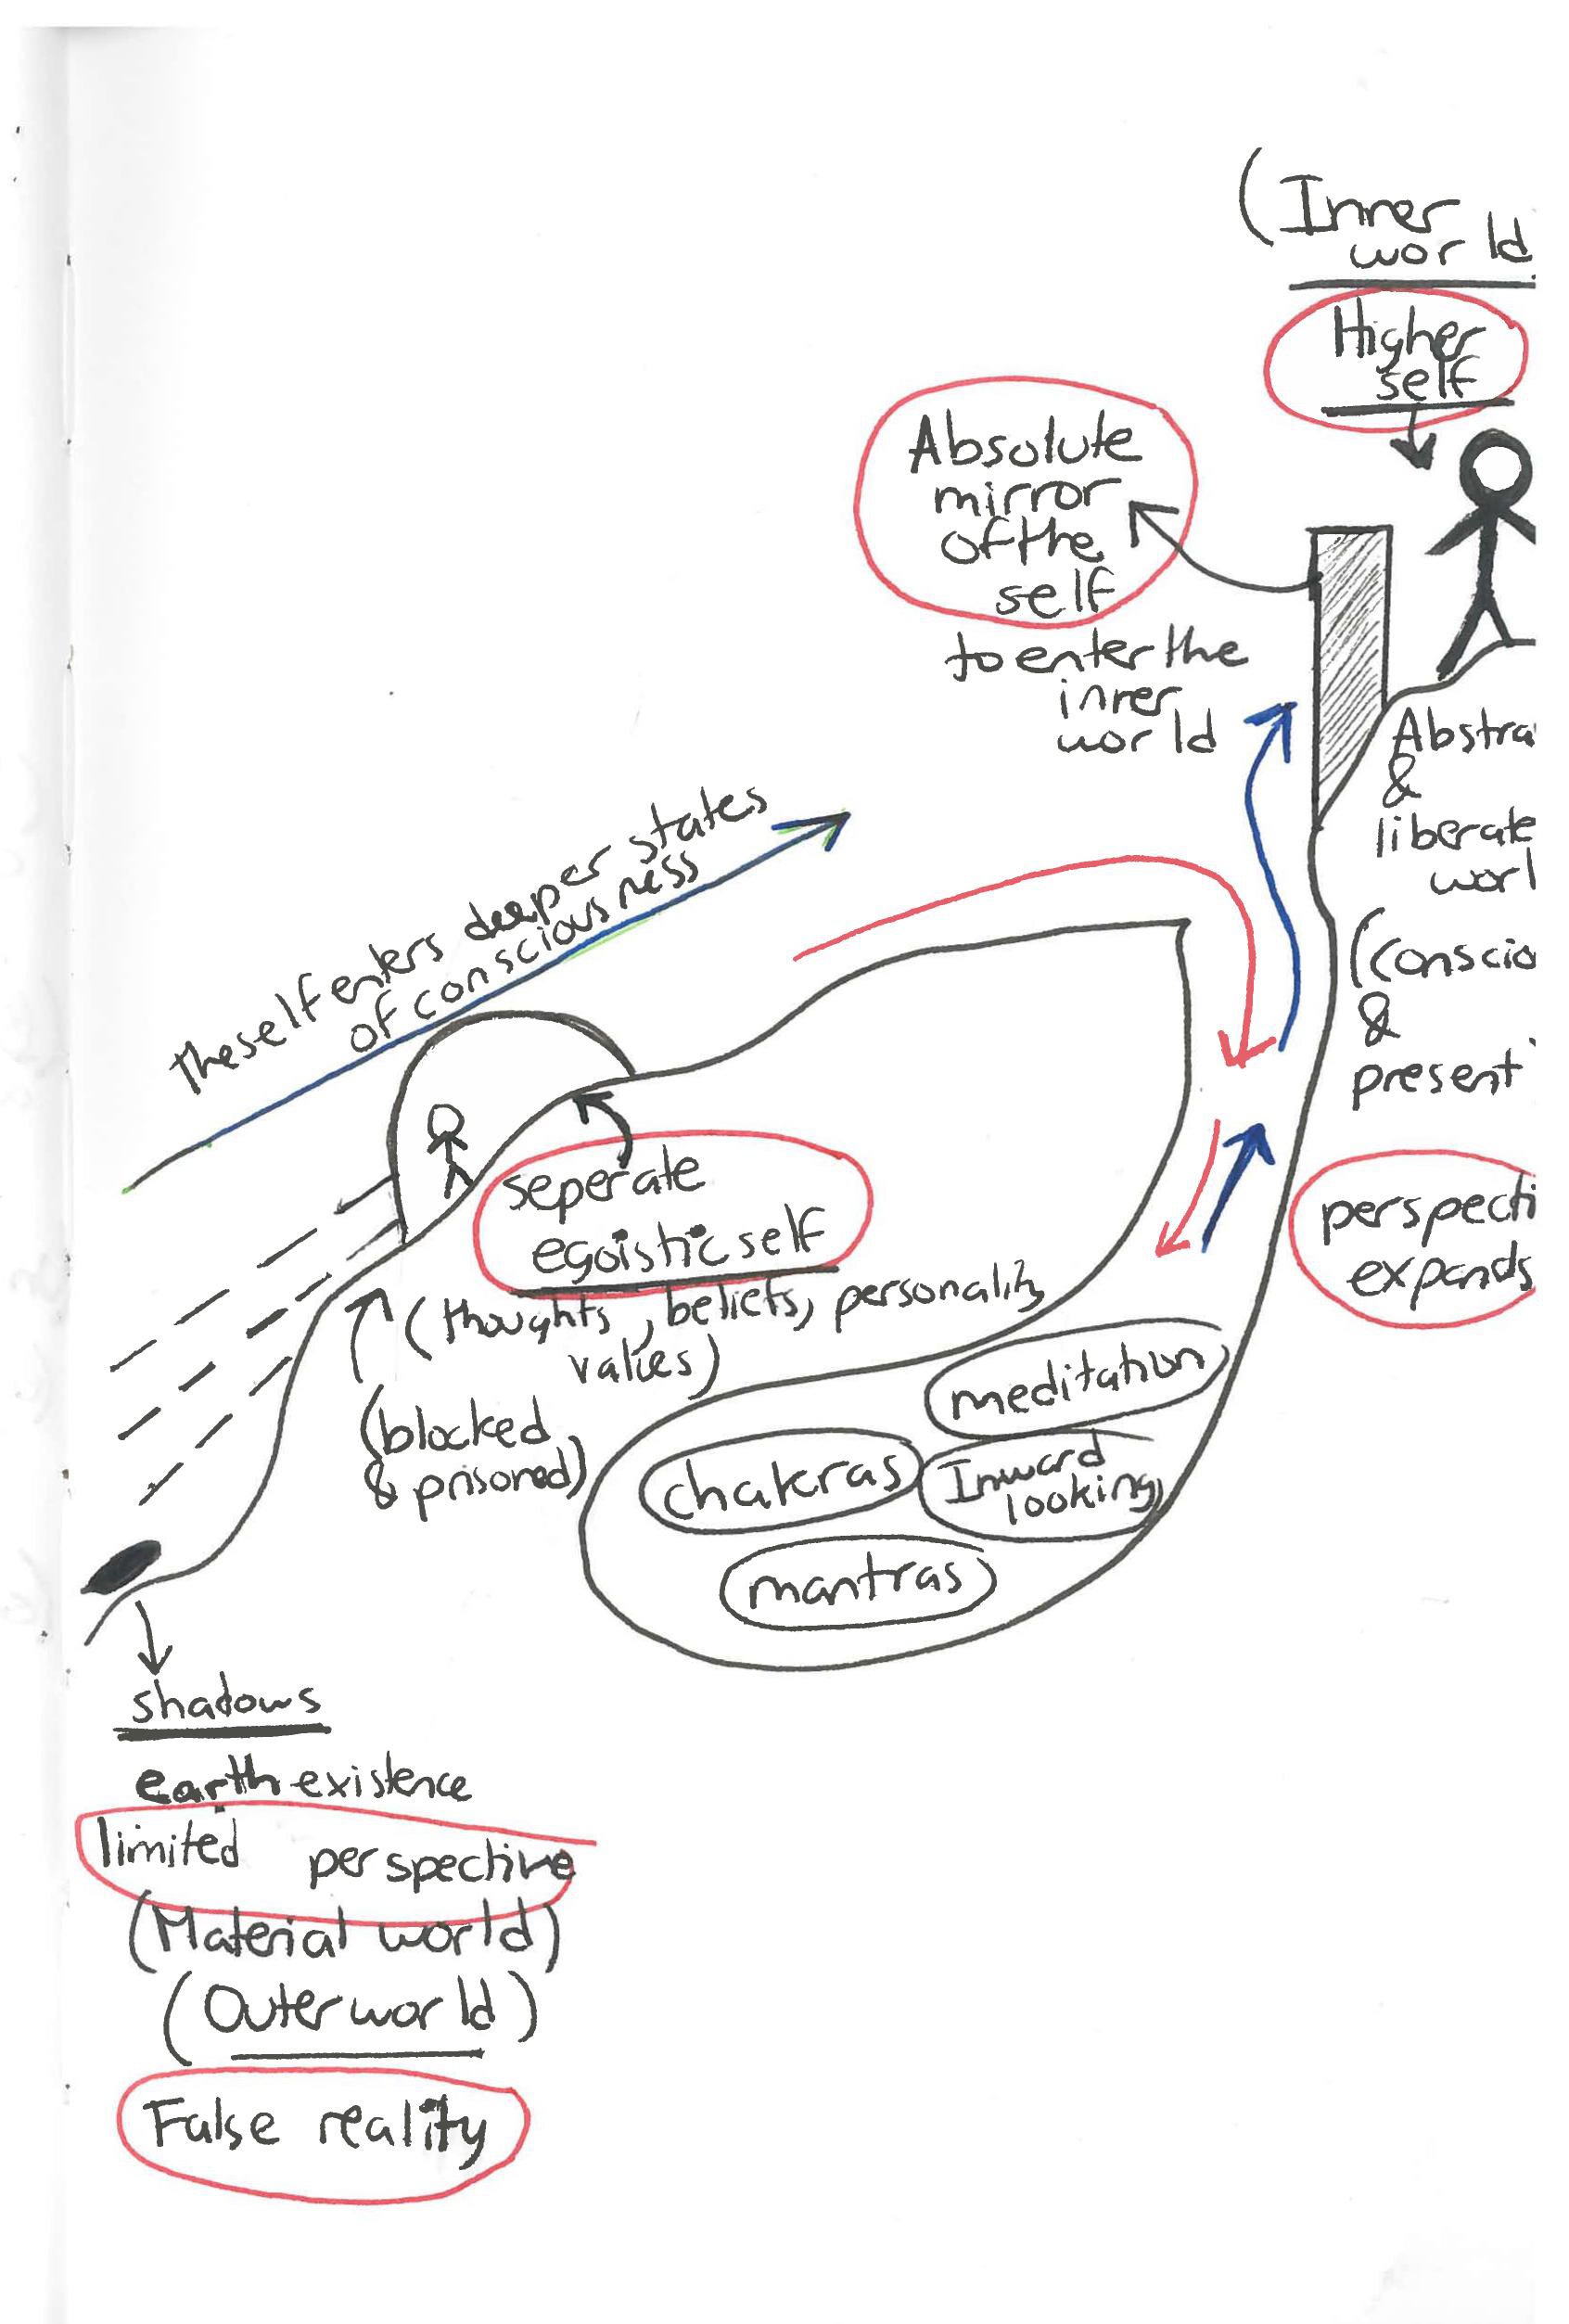 (Inner
world
Higher
self
Absolute
mirror
of the
self
to enter the
inner
world
Abstra
&
liberate
worl
(conscio
&
present
perspecti
expands
the self enters deeper states
of consciousness
seperate
egoistic self
(thoughts, beliefs, personality
values)
(blocked
& prisoned)
meditation
chakras
Inward
looking
mantras
shadows
earth existence
limited perspective
(Material world)
(Outer world)
False reality